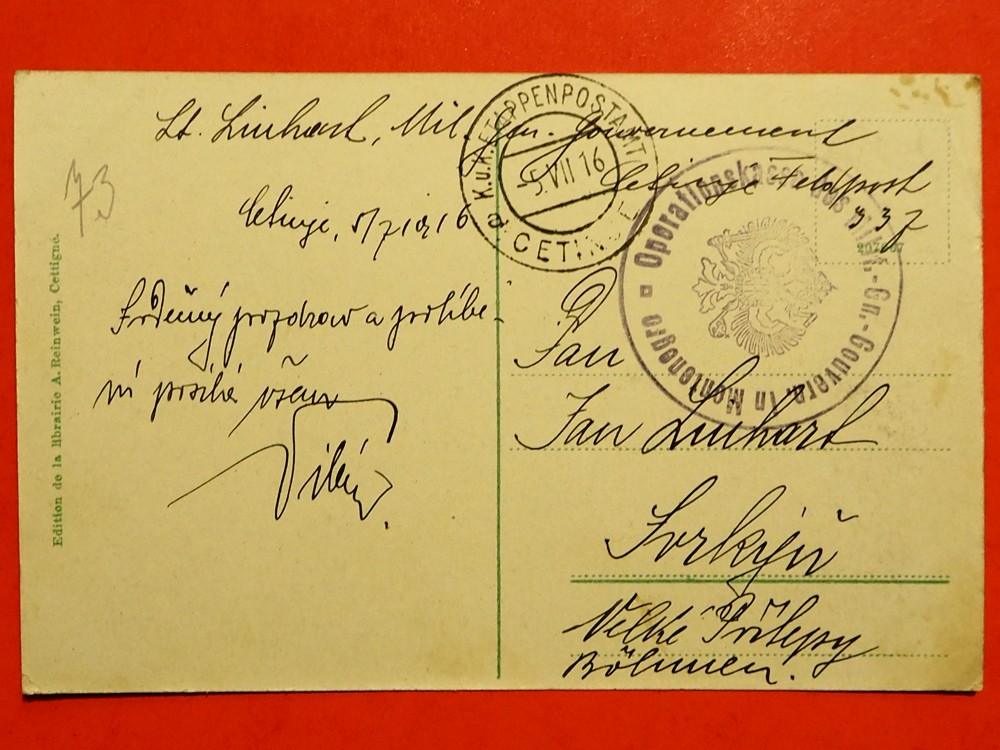 Lt. Linhart, Mil. Gen. Gouvernement
Cetinje Feldpost
Cetinje, 5/7 1916
Srdečný pozdrav a políbe-
ní posílá všem
Vilém
Pan
Jan Linhart
Velké Přílepy
Böhmen.
K.u.K. ETAPPENPOSTAMT
5.VII 16
a CETINJE
Operationskasse des Milit.-Gn.-Gouvern. in Montenegro
Edition de la librairie A. Reinwein, Cettigné.
73